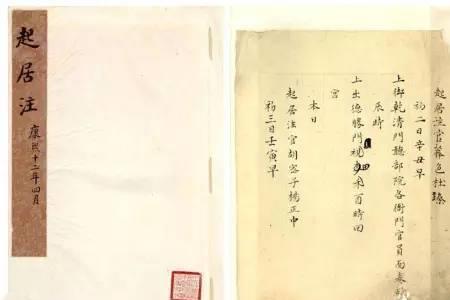 起居注
康熙十二年四月
起居注官莽色杜臻
初二日辛丑早
上御乾清門聽部院各衙門官員面奏
辰時
上出德勝門禾酉時回
宮
本日
起居注官胡密子楊正中
初三日壬寅早